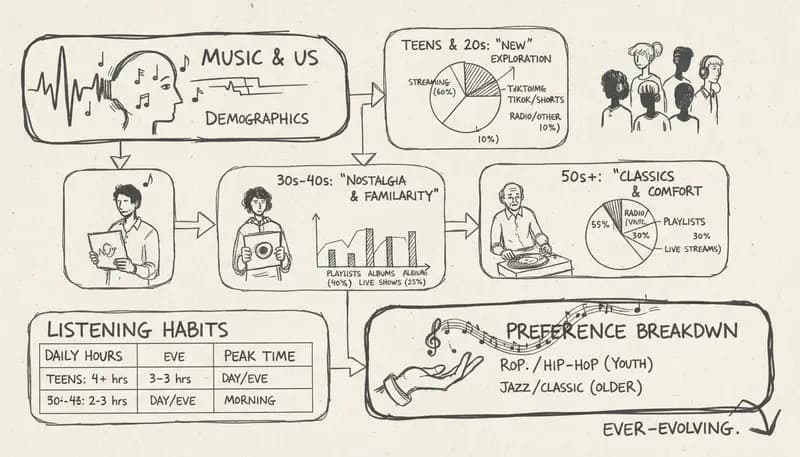 MUSIC & US
DEMOGRAPHICS
TEENS & 20s: "NEW"
EXPLORATION
STREAMING
(60%)
TIKOK/SHORTS
RADIO/OTHER
10%)
10%)
30s-40s: "NOSTALGIA
& FAMILARITY"
PLAYLISTS ALBUMS ALBUMS
(40%) LIVE SHOWS (23%)
50s+: "CLASSICS
& COMFORT
55%
RADIO/
30%
PLAYLISTS
30%
LIVE STREAMS)
LISTENING HABITS
DAILY HOURS EVE PEAK TIME
TEENS: 4+ hrs 3-3 hrs DAY/EVE
2-3 hrs DAY/EVE MORNING
PREFERENCE BREAKDWN
ROP. / HIP-HOP (YOUTH)
JAZZ/CLASSIC (OLDER)
EVER-EVOLVING.